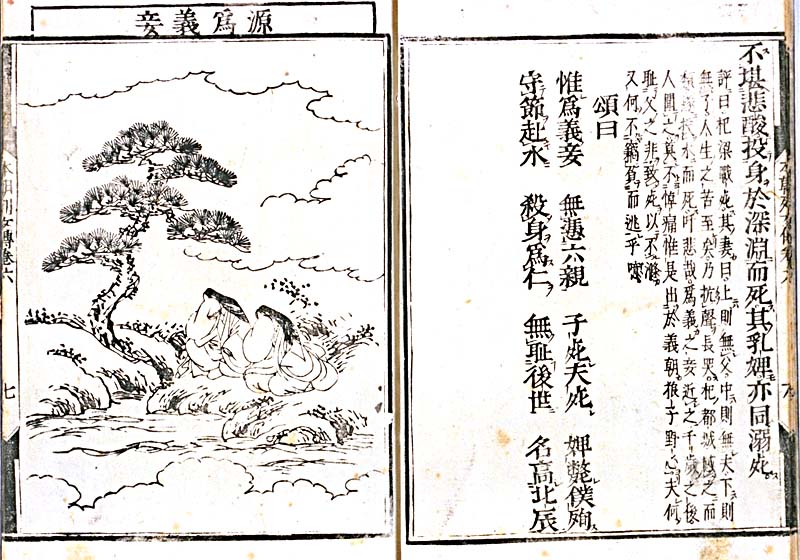 不堪悲酸投身於深淵而死其乳婢亦同溺死
評曰杞梁戰死其妻曰上則無父中則無夫下則
無子人生之苦至矣乃抗聲長哭杞都城感之而
遂投水而死吁悲哉爲義之妾近之千歲之後
人聞之莫不悼痛惟是出於義朝狼子野心夫何
耻父之非致死以不
又何不竊負而逃乎噫
頌曰
惟爲義妾 無憑六親 子死夫死 婢斃僕殉
守節赴水 殺身爲仁 無耻後世 名高北辰
源爲義妾
女傳卷六
七